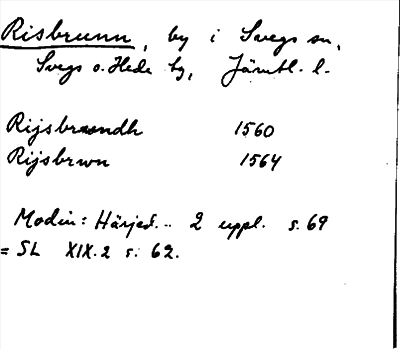 Risbrunn, by i Svegs sn,
Svegs o. Hede tg, Jämtl. l.
Rijsbrwndh 1560
Rijsbrwn 1564
Modin: Härjed... 2 uppl. s. 69
= SL XIX.2 s. 62.